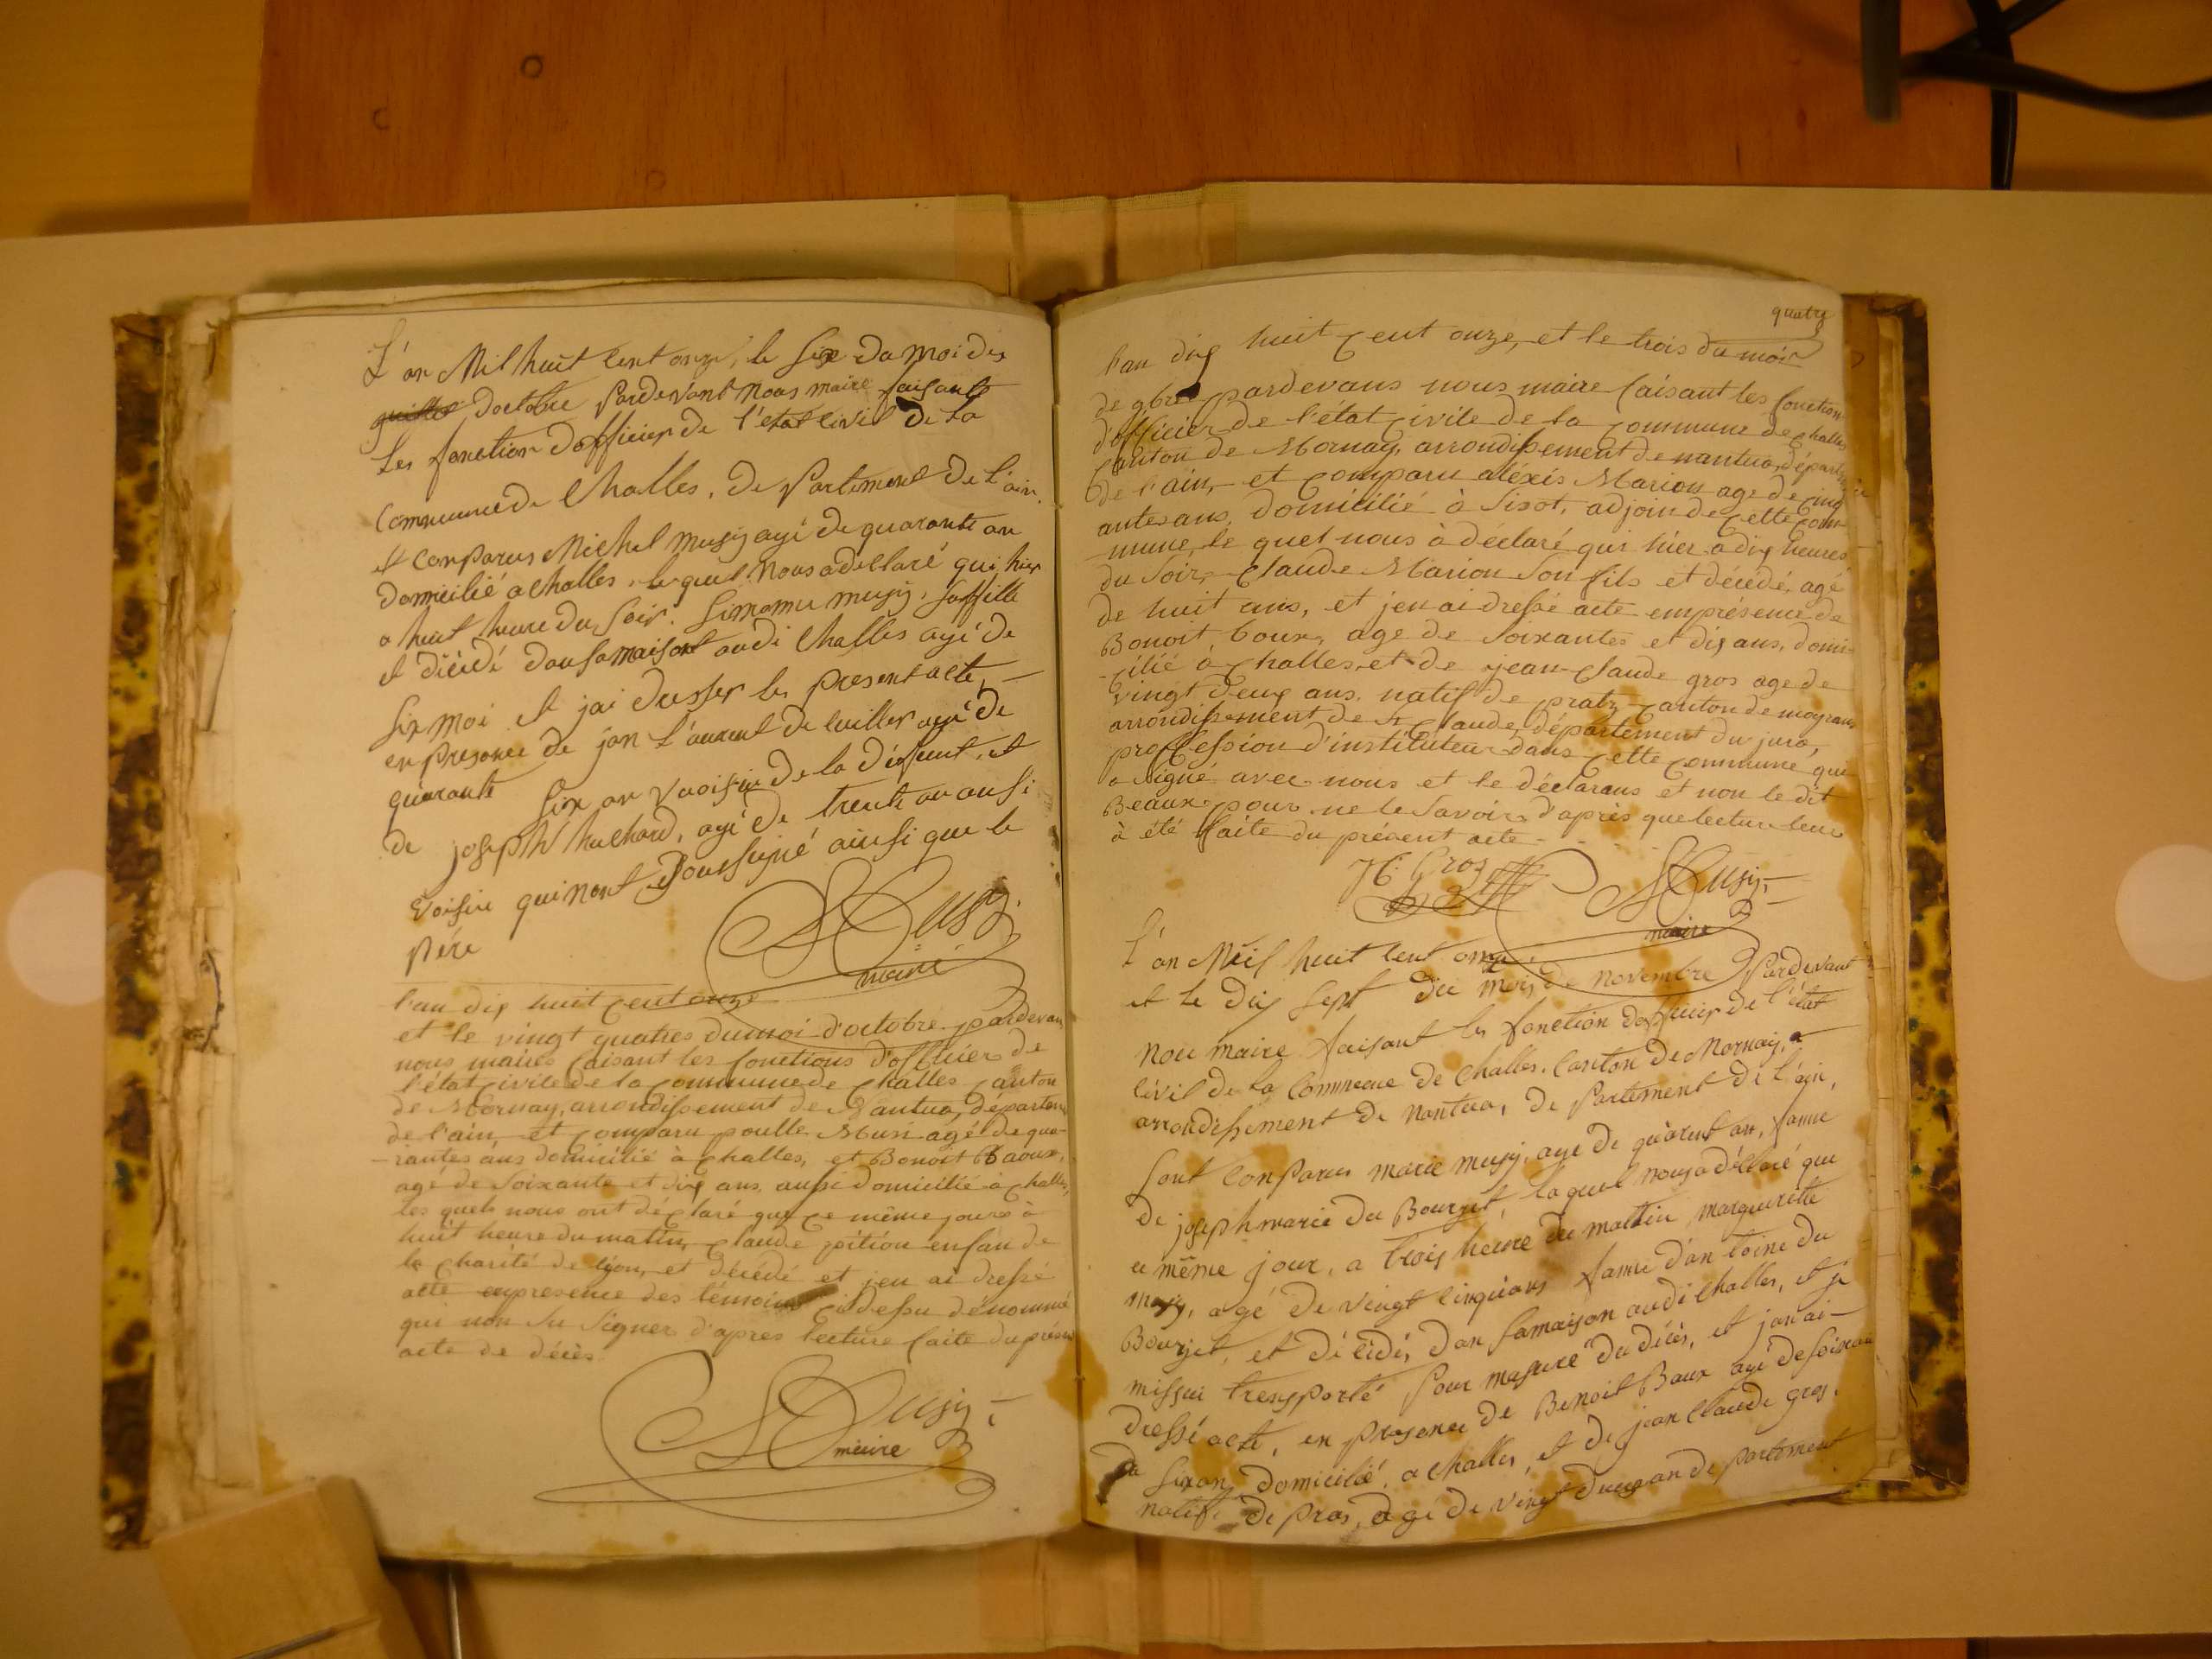 L'an Mil huit Cent onze, le six Du moi des
juillet d'octobre Pardevant nous maire faisante
Les fonction D'officier De l'état Civil De La
Commune de Challes, De Partement De l'ain.
et Comparus Michel musy agé De quarante an
Domicilié a Challes, le quel nous a déllaré qui hier
a huit heure Du Soir. musy, Saffille
et décédé dan sa maison audi Challes agé De
Six moi et jai dresser les present acte, —
en presence De jan L'aurant De luiller agé De
quarante Six an voisin De la Deffunt, et
De joseph huchard, agé De trente an ausi
voisin qui nont Poursigné ainsi que le
Père
Musy
maire
l'an dix huit cent onze
et le vingt quatres du moi d'octobre pardevan
nous maires faisant les fonctions d'officier de
l'état civile de la commune de challes canton
de Mornay, arrondissement de Nantua, départem
de l'ain, et comparu Musi agé de qua-
-rantes ans domicilié à challes, et Bonoit Baoux,
agé de Soixante et dix ans, aussi domicilié à challes,
les quels nous ont déclaré que ce même jours à
huit heure du matin, claude pition enfan de
la charité de lyon, et décédé et jen ai dressé
acte en presence des témoins ci dessu dénommé
qui non Su Signer d'apres lecture faite du présen
acte de décès.
Musy
maire
quatre
l'an dix huit cent onze, et le trois du mois
de 9bre pardevans nous maire faisant les fonction
d'officier de l'état civile de la commune de challes
canton de Mornay, arrondissement de nantua, départ
de l'ain, et comparu aléxis Marion age de cinq
antes ans, domicilié à Sizot, adjoin de cette com-
mune, le quel nous à déclaré que hier a dix heures
du Soir, claude Marion Son fils et décédé, agé
de huit ans, et jen ai dressé acte en présence de
Bonoit boux, age de Soixantes et dix ans, domi-
-cilié à challes, et de jean-claude gros age de
vingt deux ans, natif de pratz canton de moyrans
arrondissement de st claude, département du jura,
proffession d'instituteur dans cette commune qui
a Signé avec nous et le déclarans et non le dit
Beaux pour ne le Savoir, d'après que lecture leur
à été faite du présent acte -
Gros
Musy
maire
L'an Mil huit Cent onze
et le Dix Sept Du mois de novembre Pardevant
nou maire faisant les fonction D'officier De l'état
Civil De La Commune De Challes, Canton De Mornay,
arrondissement De nantua, De Partement De l'ain,
Sont Comparus marie musy, agé De quarent an, famme
De joseph marie Du Bourget, laquel nous a déllaré que
ce même jour, a trois heure Du mattin margueritte
musy, agé De vingt Cinq ans famme d'an toine Du
Bourget, et décédé, dan samaison audi Challes, et je
mi suis transporté Pour De décès, et jan ai —
dressé acte, en presence De Benoit Baux agé De Soixan
Six an Domicilié, a Challes, et De jean Claude gros,
natif De Pras, agé De vingt deux an De Partement